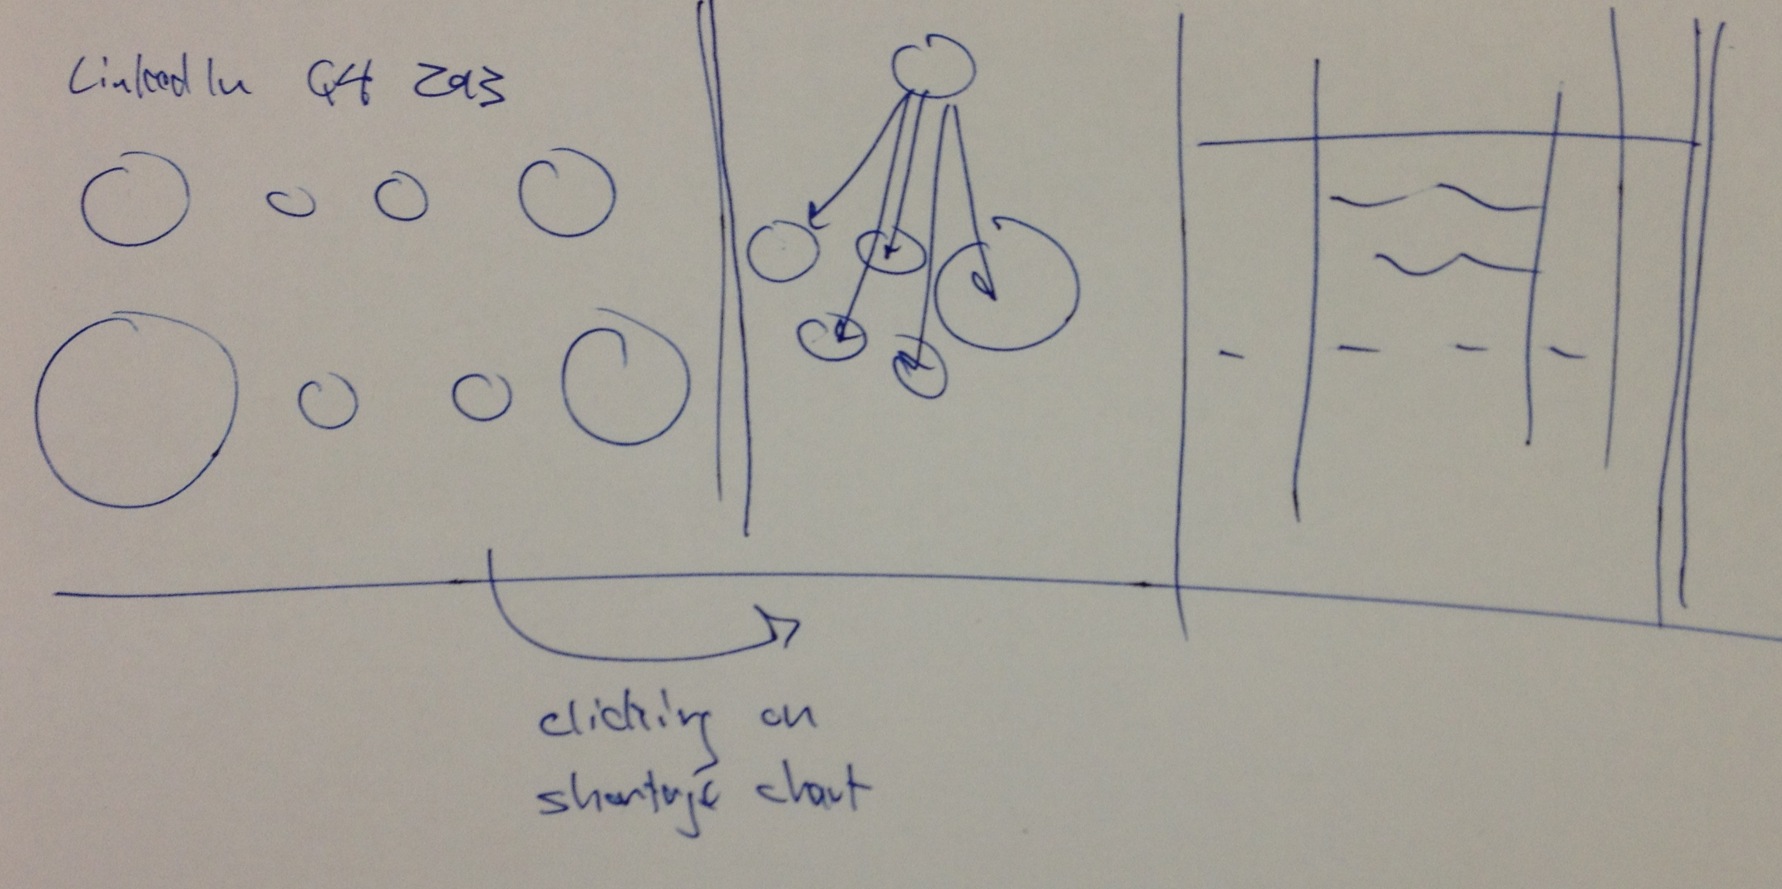 LinkedIn Q4 2013
clicking on
shortage chart